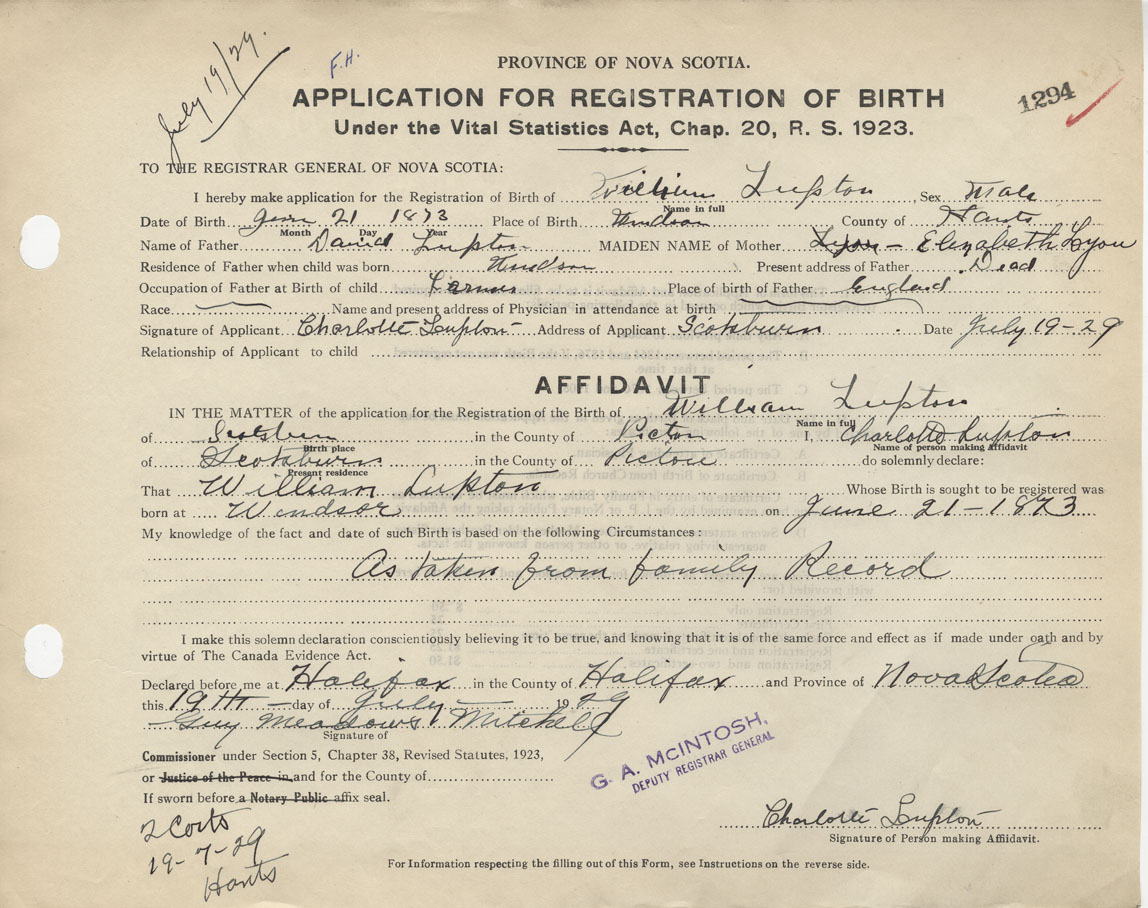 July 19/29.
F.H.
PROVINCE OF NOVA SCOTIA.
APPLICATION FOR REGISTRATION OF BIRTH
1294
Under the Vital Statistics Act, Chap. 20, R. S. 1923.
TO THE REGISTRAR GENERAL OF NOVA SCOTIA:
I hereby make application for the Registration of Birth of William Lupton Sex Male
Name in full
Date of Birth June 21 1873 Place of Birth Windsor County of Hants
Month Day Year
Name of Father David Lupton MAIDEN NAME of Mother Lyon - Elizabeth Lyon
Residence of Father when child was born Windsor Present address of Father Dead
Occupation of Father at Birth of child Farmer Place of birth of Father England
Race Name and present address of Physician in attendance at birth
Signature of Applicant Charlotte Lupton Address of Applicant Scotsburn Date July 19-29
Relationship of Applicant to child
AFFIDAVIT
IN THE MATTER of the application for the Registration of the Birth of William Lupton
Name in full
of Scotsburn in the County of Pictou I, Charlotte Lupton
Birth place Name of person making Affidavit
of Scotsburn in the County of Pictou do solemnly declare:
Present residence
That William Lupton Whose Birth is sought to be registered was
born at Windsor on June 21-1873
My knowledge of the fact and date of such Birth is based on the following Circumstances:
As taken from family Record
I make this solemn declaration conscientiously believing it to be true, and knowing that it is of the same force and effect as if made under oath and by
virtue of The Canada Evidence Act.
Declared before me at Halifax in the County of Halifax and Province of Nova Scotia
this 19th day of July 1929
Guy Meadows Mitchell
Signature of
Commissioner under Section 5, Chapter 38, Revised Statutes, 1923,
or Justice of the Peace in and for the County of
If sworn before a Notary Public affix seal.
G. A. MCINTOSH,
DEPUTY REGISTRAR GENERAL
2 Certs
19-7-29
Hants
Charlotte Lupton
Signature of Person making Affidavit.
For Information respecting the filling out of this Form, see Instructions on the reverse side.